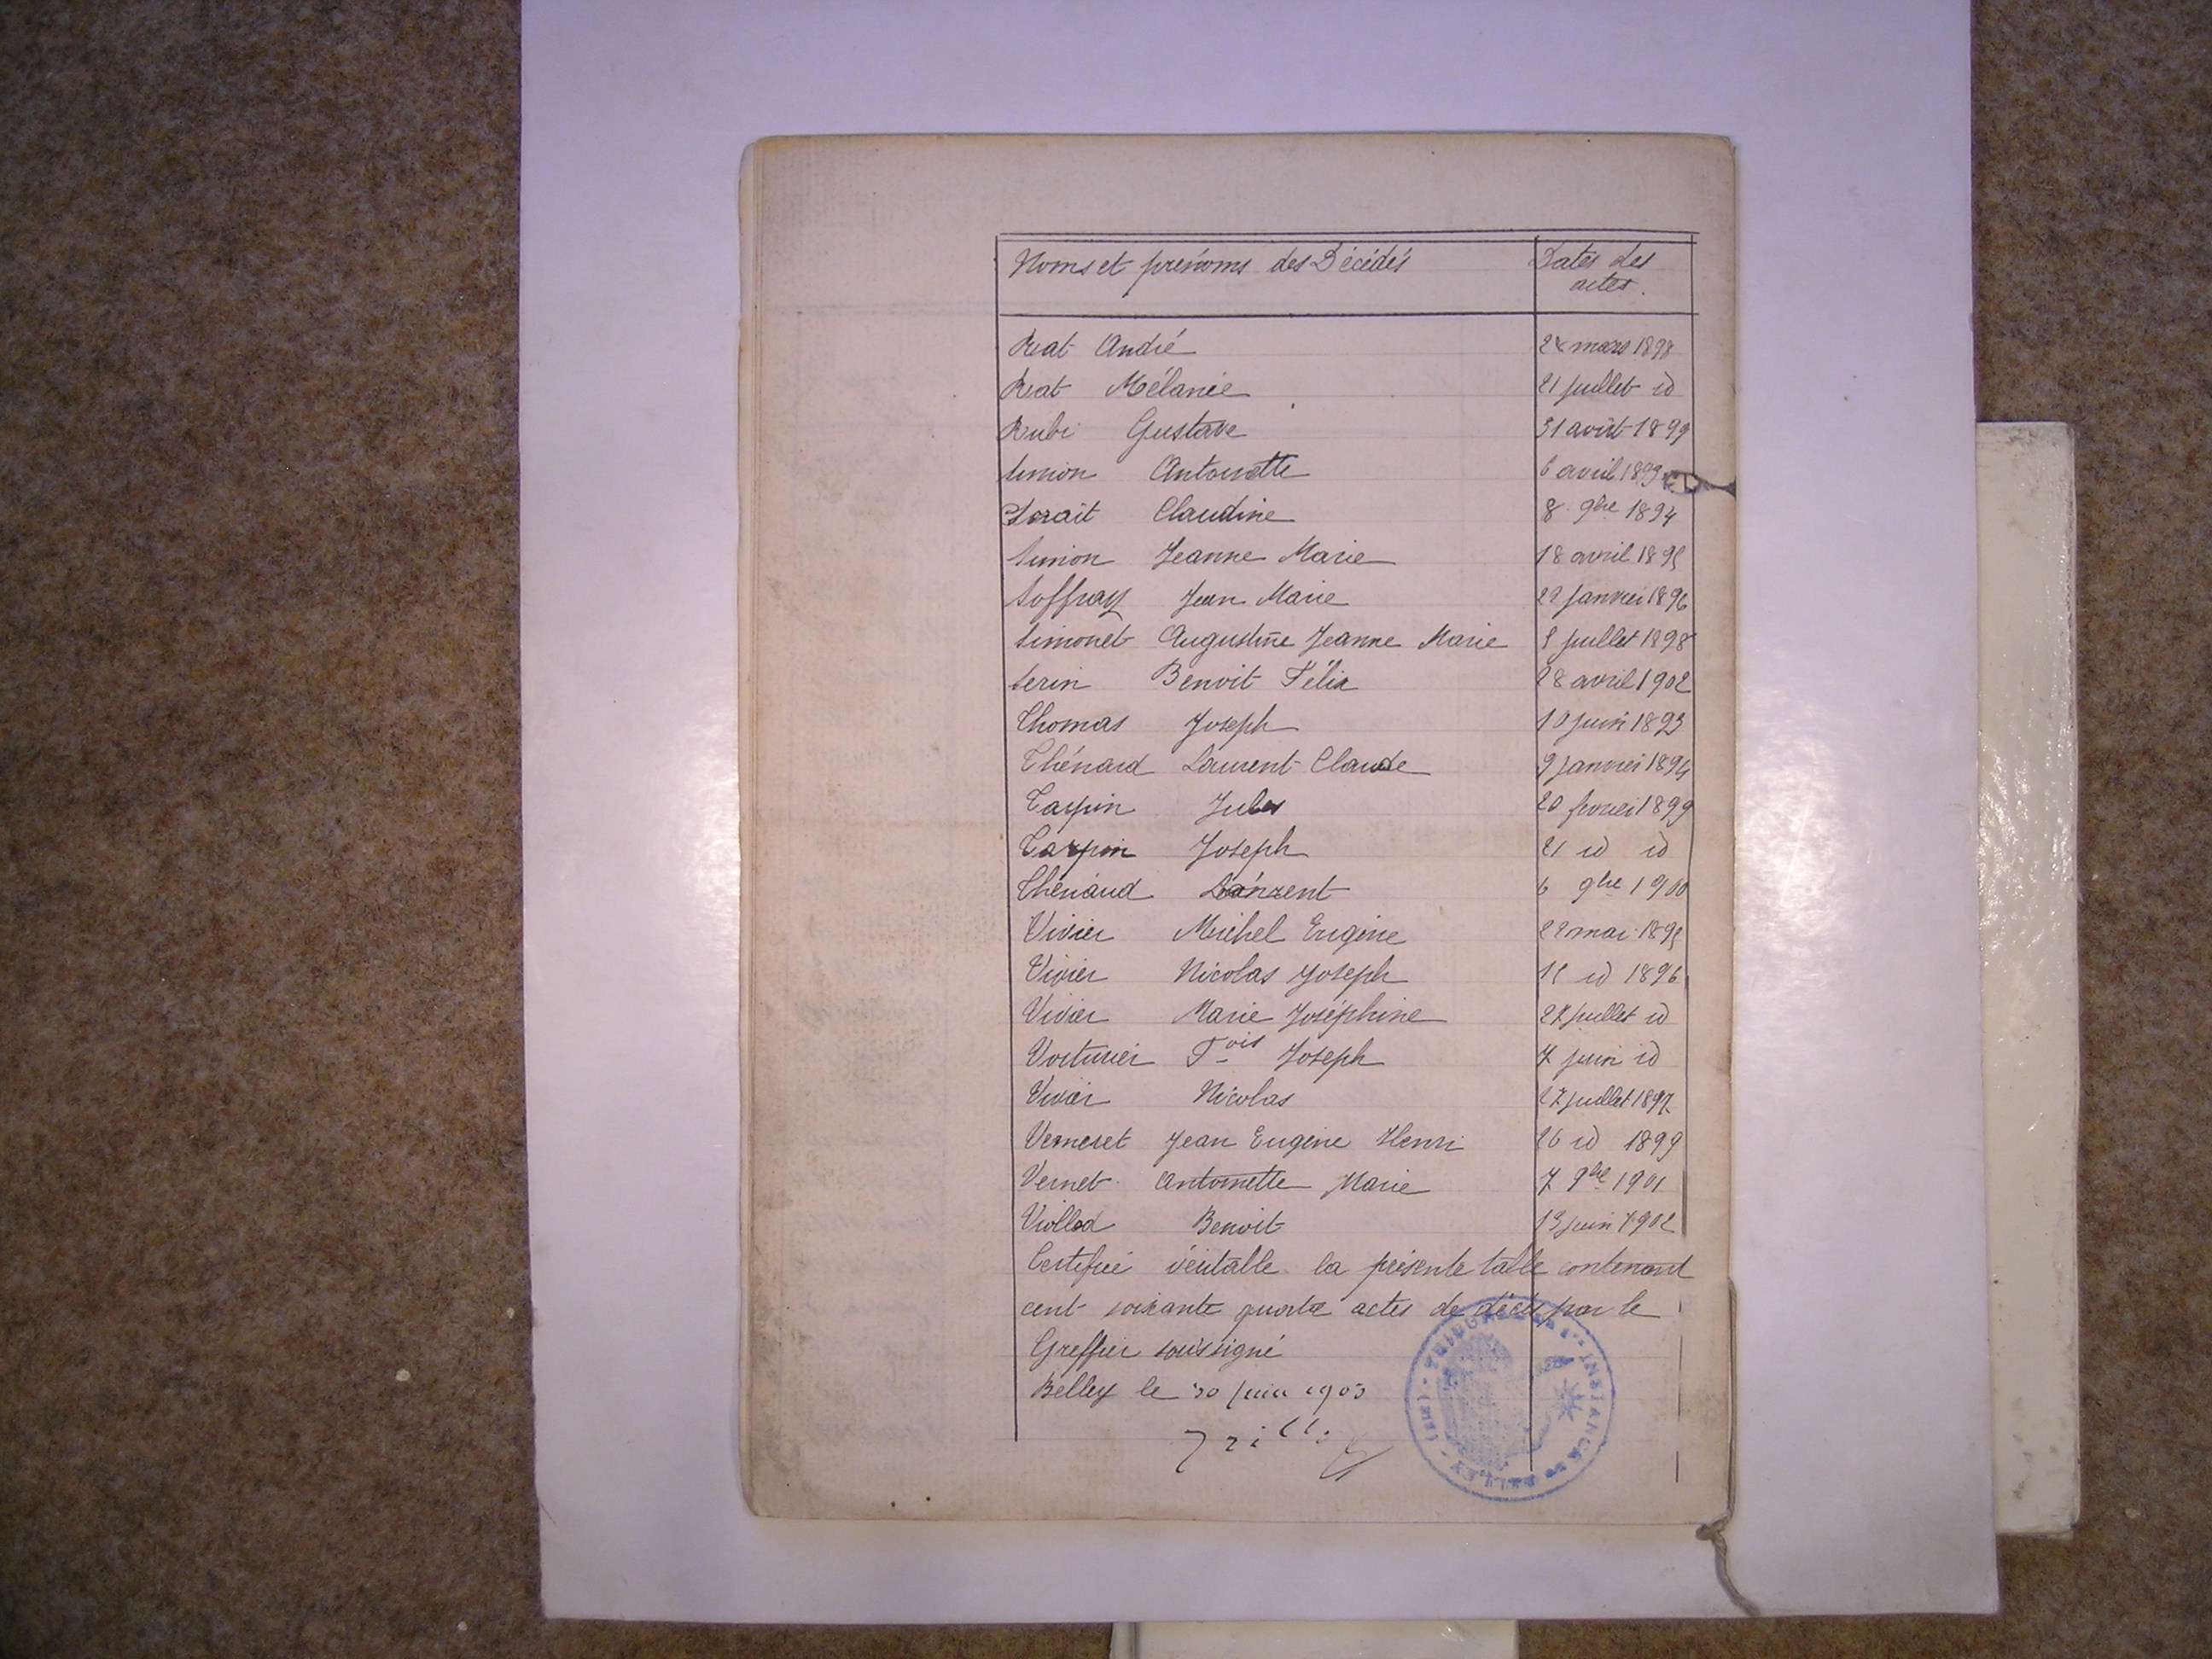 Noms et prénoms des Décédés Dates des actes.
Rat André 24 mars 1898
Rat Mélanie 21 juillet id
Rubi Gustave 31 août 1899
Simion Antoinette 6 avril 1893
Serait Claudine 8 9bre 1894
Simion Jeanne Marie 18 avril 1895
Soffray Jean Marie 29 janvier 1896
Simonet Augustine Jeanne Marie 8 juillet 1898
Serin Benoit Félix 28 avril 1902
Thomas Joseph 10 juin 1893
Thénard Laurent Claude 9 janvier 1894
Tarpin Jules 20 février 1899
Tarpin Joseph 21 id id
Thénard Laurent 6 9bre 1900
Vivier Michel Eugène 22 mai 1895
Vivier Nicolas Joseph 15 id 1896
Vivier Marie Joséphine 27 juillet id
Voiturier Fois Joseph 7 juin id
Vivier Nicolas 27 juillet 1897
Verneret Jean Eugène Henri 26 id 1899
Vernet Antoinette Marie 7 9bre 1901
Viollod Benoit 13 juin 1902
Certifié véritable la présente table contenant
cent soixante quatre actes de décès par le
Greffier soussigné
Belley le 30 juin 1903
TRIBUNAL DE 1re INSTANCE DE BELLEY - (AIN) -